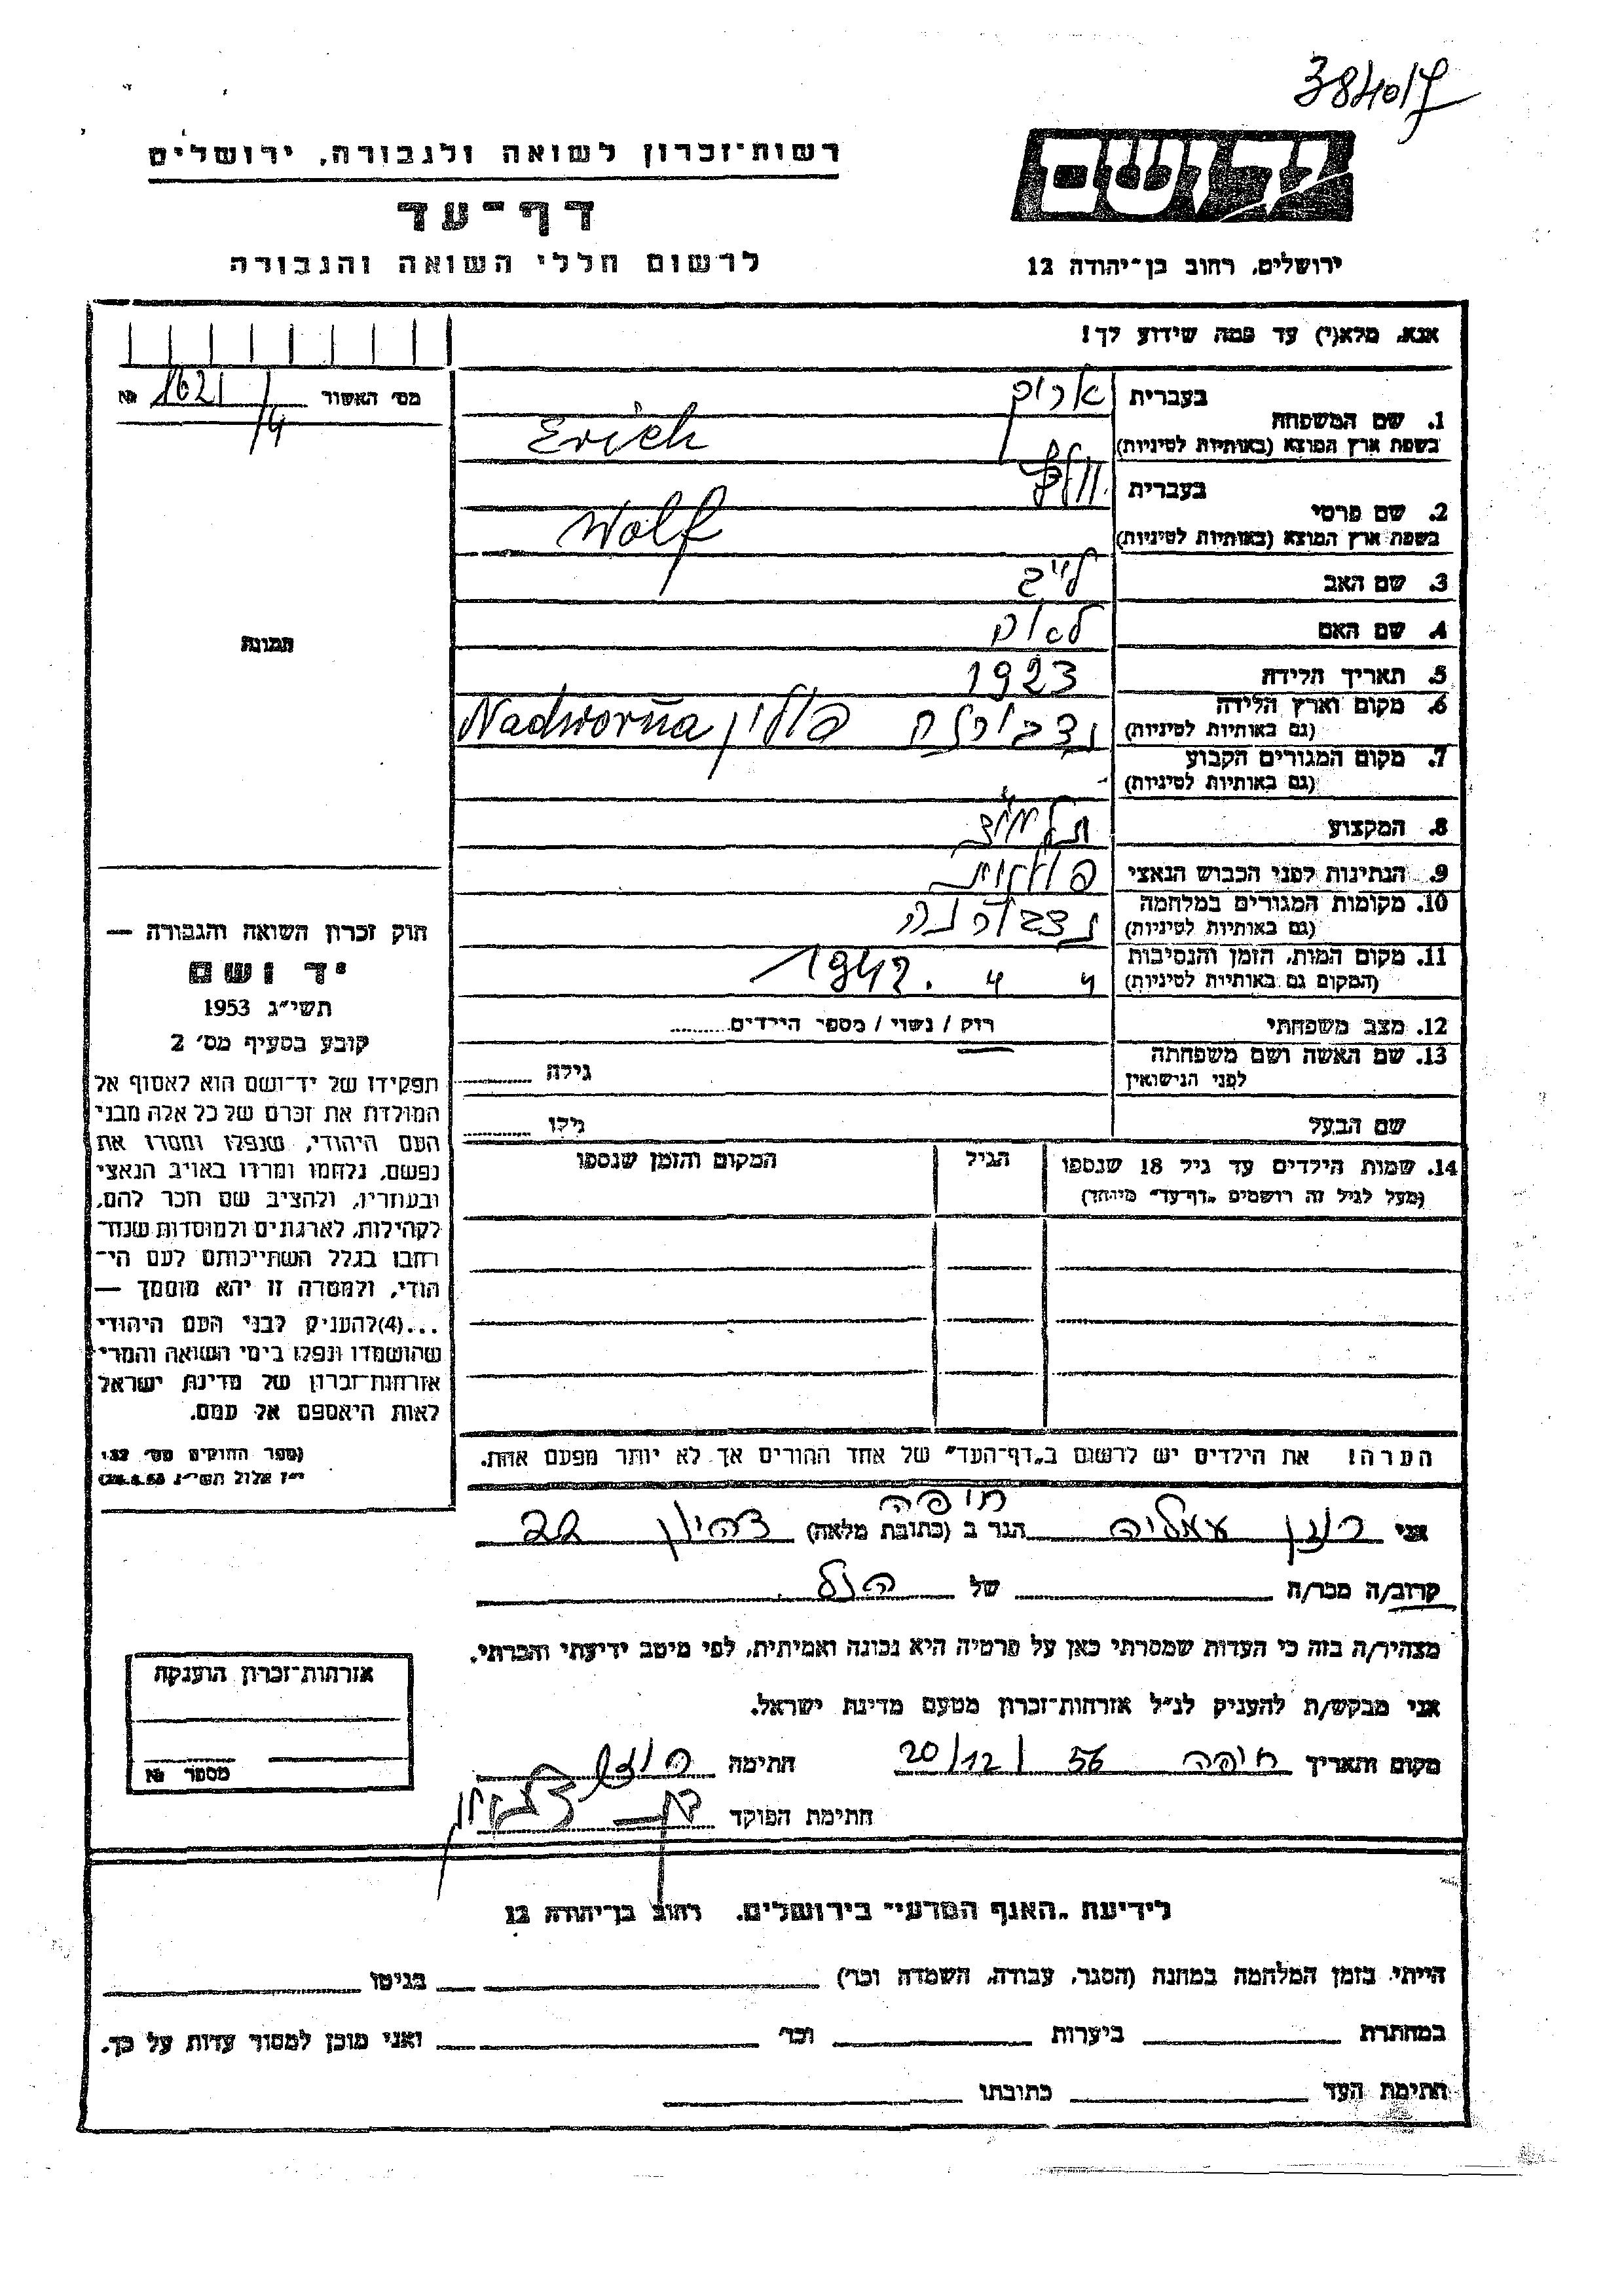 384017
רשות־זכרון לשואה ולגבורה, ירושלים
דף־עד
לרשום חללי השואה והגבורה
יד ושם
ירושלים, רחוב בן־יהודה 12
אנא, מלא(י) עד כמה שידוע לך!
מס׳ האשור 1621/4 №
תמונה
1. שם המשפחה
בעברית
בשפת ארץ המוצא (באותיות לטיניות) Erich
2. שם פרטי
בעברית וולף
בשפת ארץ המוצא (באותיות לטיניות) Wolf
3. שם האב לייב
4. שם האם
5. תאריך הלידה 1923
6. מקום וארץ הלידה
(גם באותיות לטיניות) נדבורנה פולין Nadworna
7. מקום המגורים הקבוע
(גם באותיות לטיניות)
8. המקצוע תלמיד
9. הנתינות לפני הכבוש הנאצי פולנית
10. מקומות המגורים במלחמה
(גם באותיות לטיניות) נדבורנה
11. מקום המות, הזמן והנסיבות
(המקום גם באותיות לטיניות) 1942.
12. מצב משפחתי רוק / נשוי / מספר הילדים
13. שם האשה ושם משפחתה
לפני הנישואין גילה
שם הבעל גילו
14. שמות הילדים עד גיל 18 שנספו
(מעל לגיל זה רושמים „דף־עד״ מיוחד)
הגיל
המקום והזמן שנספו
הערה! את הילדים יש לרשום ב„דף־העד״ של אחד ההורים אך לא יותר מפעם אחת.
חוק זכרון השואה והגבורה —
יד ושם
תשי״ג 1953
קובע בסעיף מס׳ 2
תפקידו של יד־ושם הוא לאסוף אל
המולדת את זכרם של כל אלה מבני
העם היהודי, שנפלו ומסרו את
נפשם, נלחמו ומרדו באויב הנאצי
ובעוזריו, ולהציב שם וזכר להם,
לקהילות, לארגונים ולמוסדות שנח־
רבו בגלל השתייכותם לעם הי־
הודי, ולמטרה זו יהא מוסמך —
...(4) להעניק לבני העם היהודי
שהושמדו ונפלו בימי השואה והמרי
אזרחות־זכרון של מדינת ישראל
לאות היאספם אל עמם.
(ספר החוקים מס׳ 132
י״ז אלול תשי״ג 28.8.53)
אני עמליה הגר ב (כתובת מלאה) חיפה 22
קרוב/ה מכר/ה של הנ״ל
מצהיר/ה בזה כי העדות שמסרתי כאן על פרטיה היא נכונה ואמיתית, לפי מיטב ידיעתי והכרתי.
אני מבקש/ת להעניק לנ״ל אזרחות־זכרון מטעם מדינת ישראל.
מקום ותאריך חיפה 20/12/56 חתימה
חתימת הפוקד
אזרחות־זכרון הוענקה
מספר №
לידיעת „האגף המדעי״ בירושלים. רחוב בן־יהודה 12
הייתי בזמן המלחמה במחנה (הסגר, עבודה, השמדה וכו׳) בגיטו
במחתרת ביערות וכו׳ ואני מוכן למסור עדות על כך.
חתימת העד כתובתו